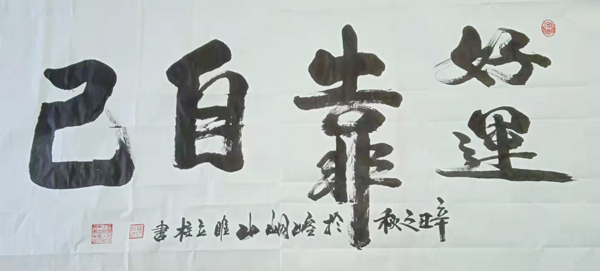 好運靠自己
辛丑之秋於崆峒山立柱書